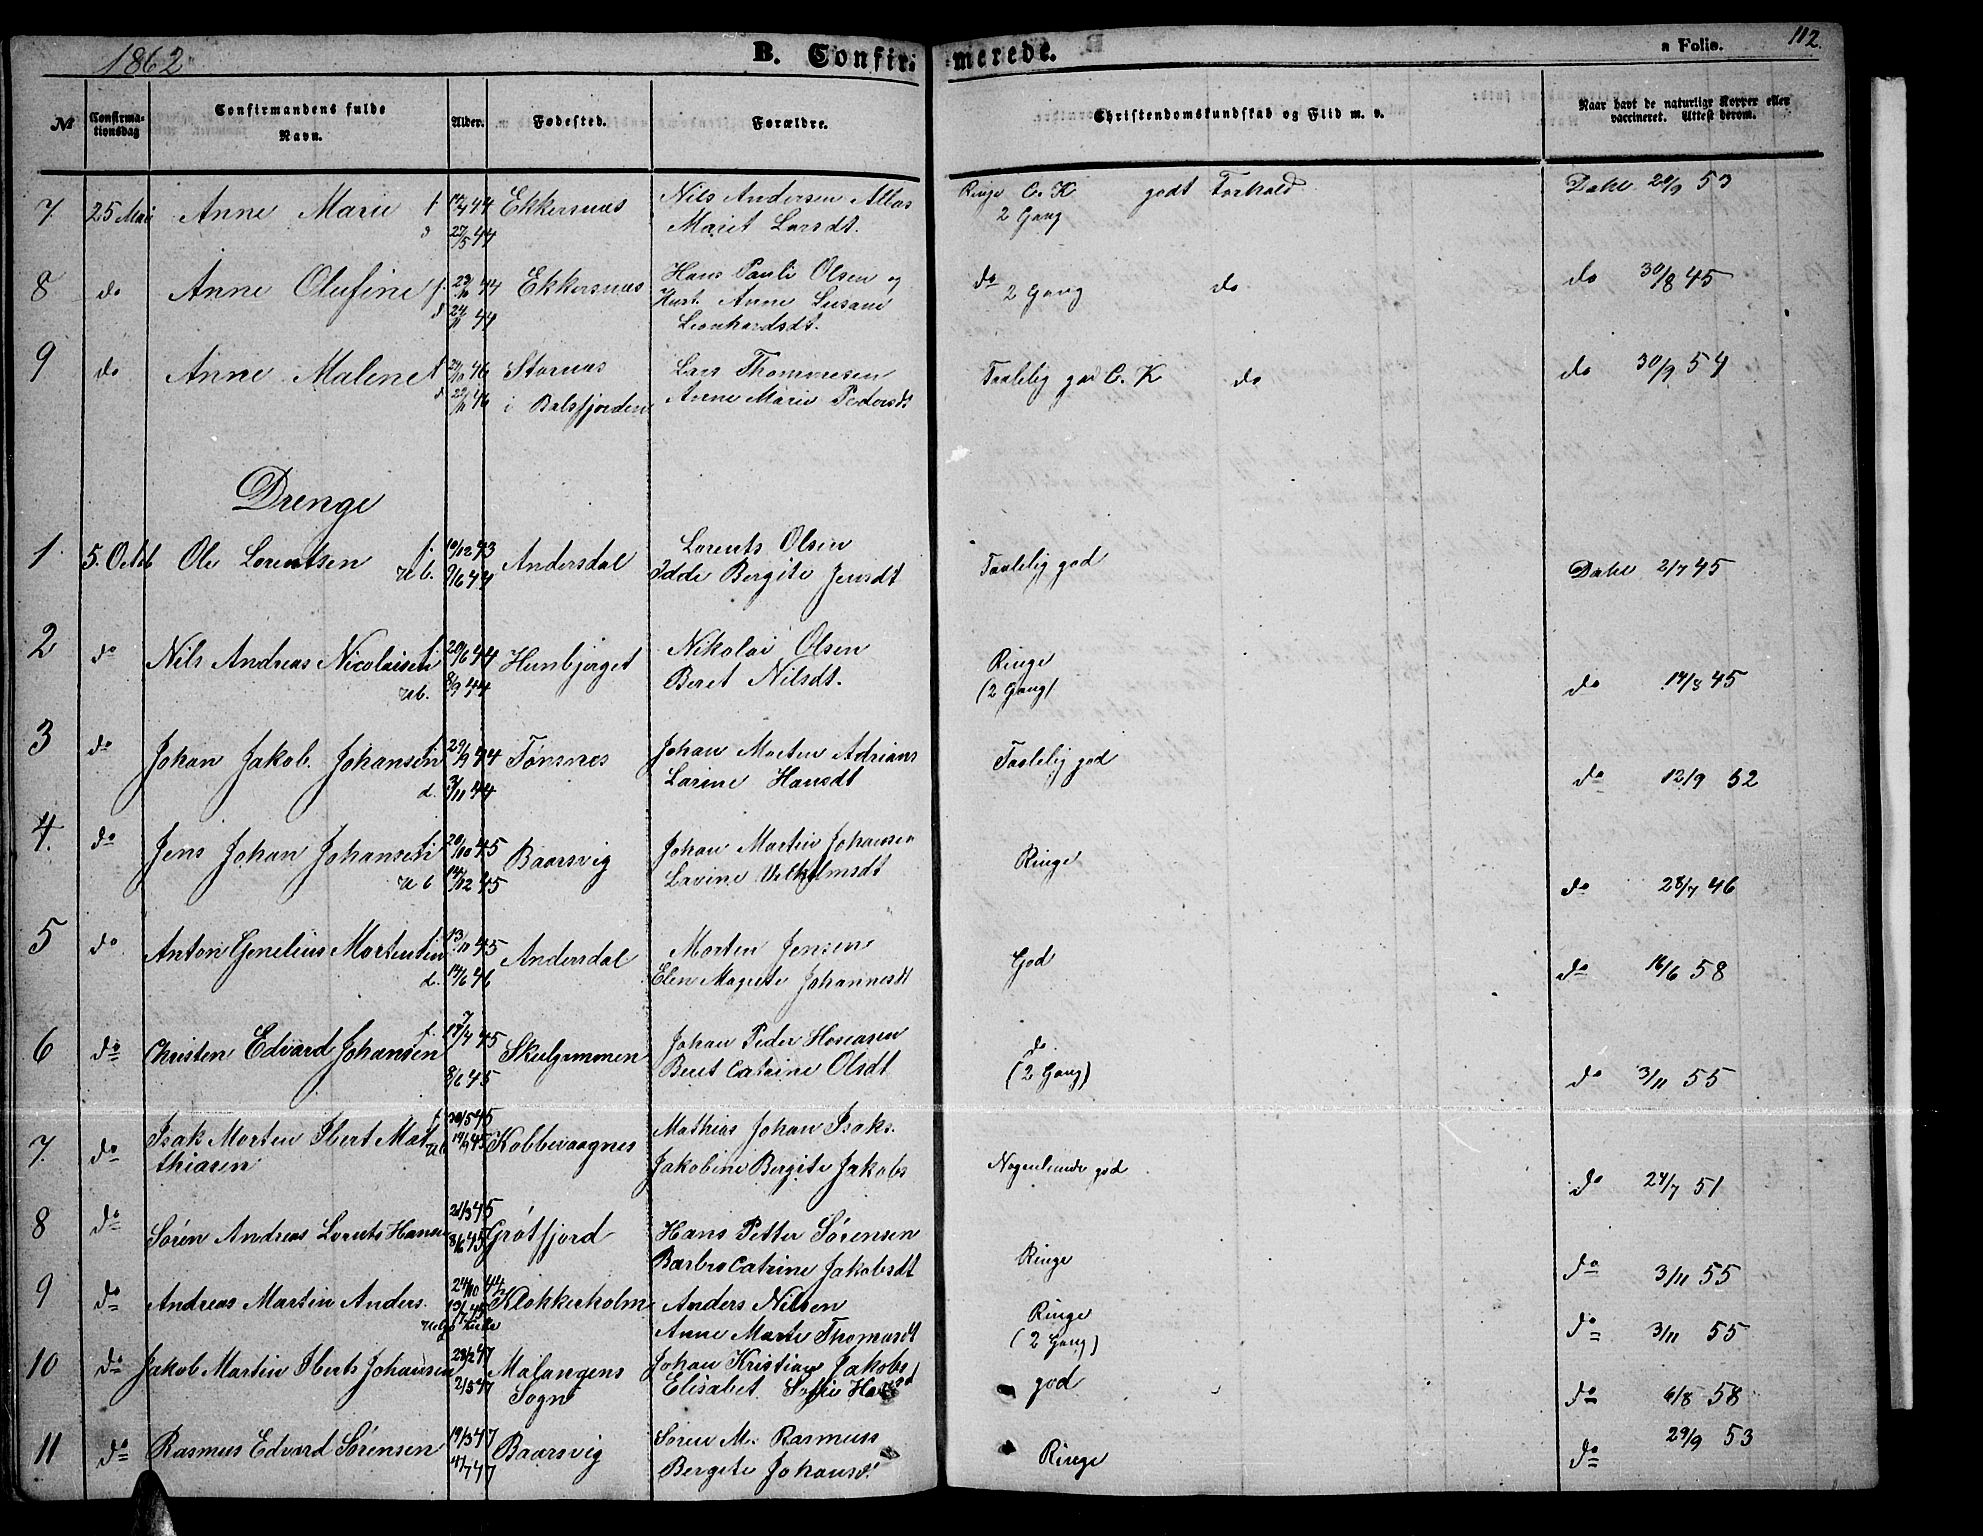 1862
B. Confir-
merede.
a Folio.
112.
№
Confirma-
tionsdag
Confirmandens fulde
Navn.
Alder.
Fødested.
Forældre.
Christendomskundskab og Flid m. v.
Naar havt de naturlige Kopper eller
vaccineret. Attest derom.
7. 25 Mai Anne Marie f. 44 Ekkersnæs Nils Andersen Ringe C. K godt Forhold Dahl 20/9 53
d 27/5 44 Marit Larsdt. 2 Gang
8 do Anne Olufine f. 44 Ekkersnæs Hans Pauli Olsen og do do do 30/8 45
d 44 Hust. Anne Susane 2 Gang
Leonhardsdt.
9 do Anne Malene f 46 Stornæs Lars Thommesen Taalelig god C. K do do 30/9 54
d 46 i Balsfjorden Anne Marie Pedersdt
Drenge
1. 5. Octob Ole Lorentsen f. 10/12 43 Andersdal Lorents Olsen Taalelig god Dahl 2/7 45
u b. 9/6 44 Bergite Jensdt
2 do Nils Andreas Nicolaisen f 20/6 44 Hunbjerget Nikolai Olsen Ringe
u b. 8/9 44 Beret Nilsdt. (2 Gang) do 45
3 do Johan Jakob Johansen 29/9 44 Tønsnes Johan Morten Adrians Taalelig god do 12/9 52
d. 3/11 44 Larine Hansdt
4. do Jens Johan Johansen 20/10 45 Baarsvig Johan Martin Johansen Ringe
u b 14/12 45 Lavine Vilhelmsdt do 28/7 46
5 do Anton Mortensen 45 Andersdal Morten Jensen God do 16/6 58
d. 14/6 46 Elen Magrete Johannesdt
6 do Christen Edvard Johansen f. 45 Skulgammen Johan Peder Hoseasen do
8/6 45 Beret Catrine Olsdt (2 Gang) do 3/11 55
7. do Isak Morten Ibert Mat- f 45 Kobbevaagnes Mathias Johan Isaks.
thiasen ub 45 Jakobine Bergite Jakobs Nogenlunde god do 24/7 51
8 do Søren Andreas Lorents Hansen 21/3 45 Grøtfjord Hans Petter Sørensen
8/6 45 Barbro Catrine Jakobsdt Ringe do 3/11 55
9 do Andreas Martin Anders. 24/10 44 Klokkerholm Anders Nilsen Ringe do 3/11 55
45 Anne Marte Thomasdt (2 Gang)
10 do Jakob Martin Iberts Johansen 23/2 47 Malangens Johan Kristian Jakobs god do 6/8 58
2/5 47 Sogn Elisabet Sofie
11 do Rasmus Edvard Sørensen 19/3 47 Baarsvig Søren M. Rasmuss Ringe do 29/9 53
4/7 47 Bergite Johansd.